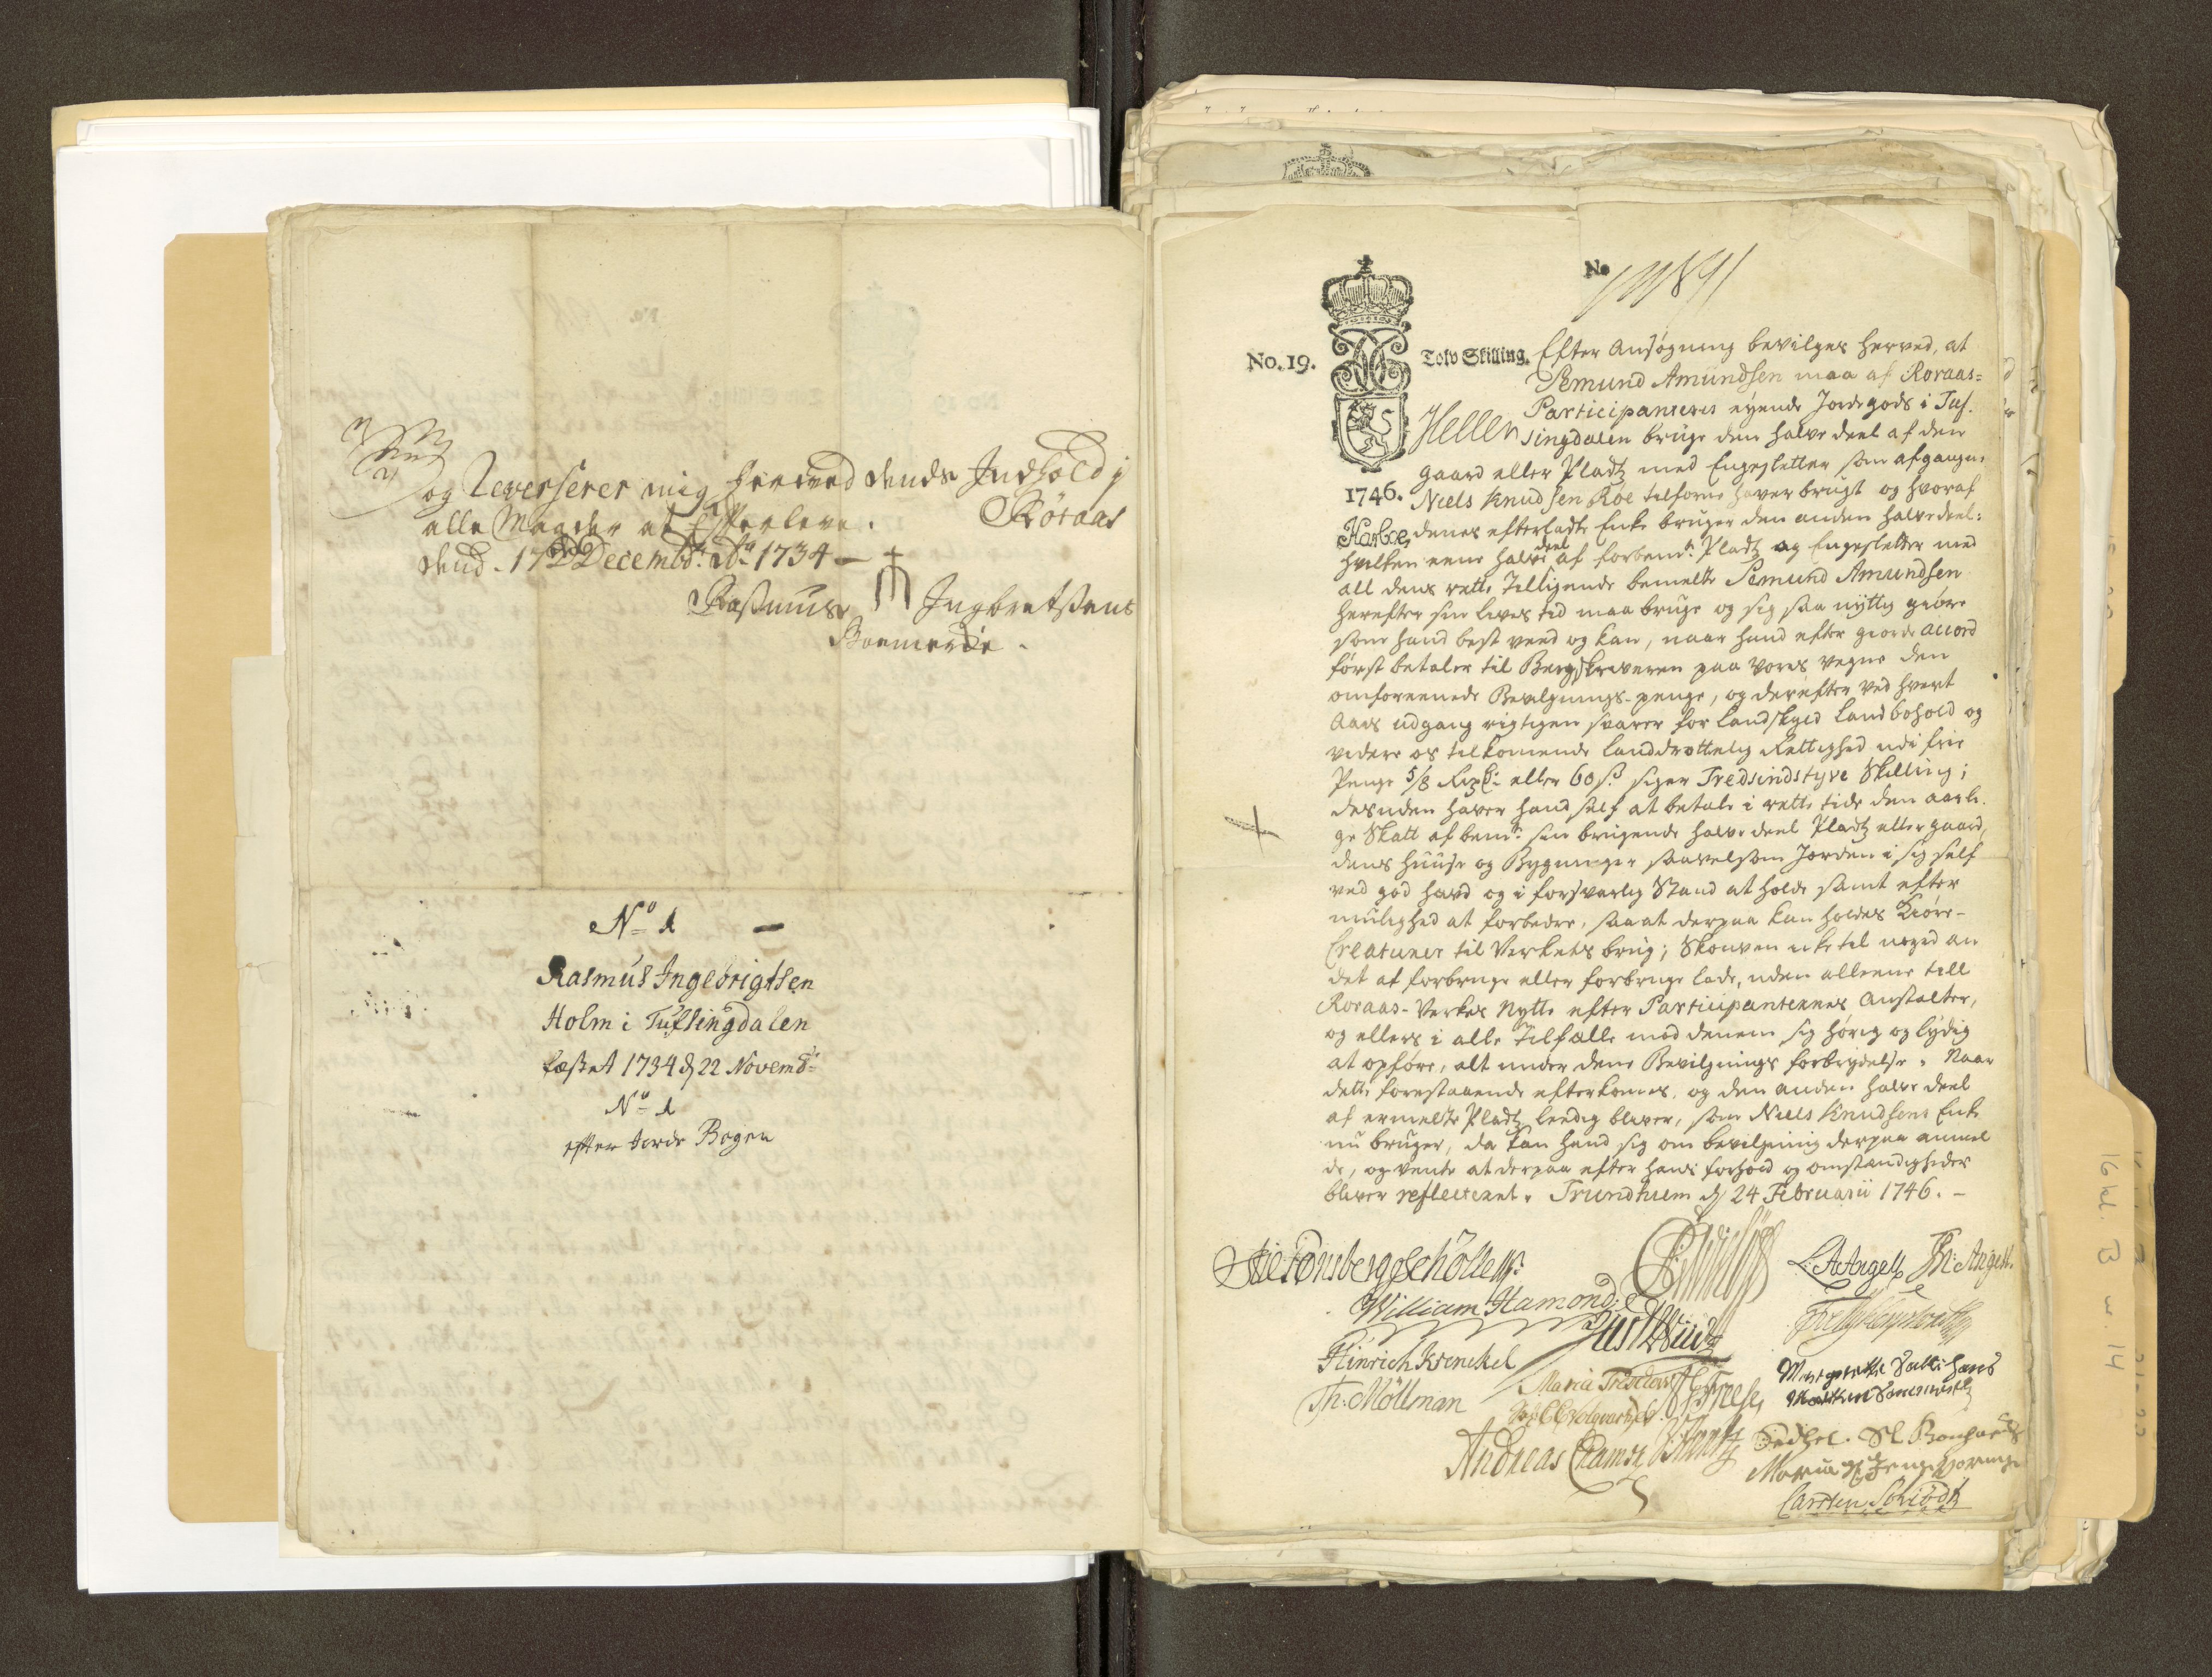 og Reverserer mig herved dends Indhold j
alle Maader at Efterleve. Röraas
dend. 17de Decembr: Ao 1734 —
Rasmus Ingbretsens
Boemercke.
No 1 —
Rasmus Ingebrigtsen
Holm i Tufsingdalen
fæstet 1734 d 22 Novembr:
No 1
efter Jorde Bogen
No
No. 19.
Tolv Skilling.
Efter Ansøgning bevilges herved, at
Pemund Amundsen maa af Roraas=
Participanteres eyende Jordegods i Tuf=
singdalen bruge den halve deel af den
Hellen
gaard eller Pladz med Engesletter som afgangne
1746. Niels Knudsen Roe tilforne haver brugt og hvoraf
Harboe
denes efterladte Enke bruger den anden halve deel:
hvilken eene halve deel af forbemte Pladz og Engesletter med
all dens rette Tilligende bemelte Pemund Amundsen
herefter sin lives tid maa bruge og sig saa nyttig giøre
som hand best veed og kan, naar hand efter giorde accord
først betaler til Bergskriveren paa vores vegne den
omforeenede Bevilgnings-penge, og derefter ved hvert
Aars udgang rigtigen svarer for Landskyld Landbohold og
videre os tilkomende landdrottelig Rettighed udi frie
Penge 5/8 Rixd: eller 60 s: siger Tredsindstyve Skilling;
desuden haver hand self at betale i rette tide den aarli=
ge Skatt af bemte sin brugende halve deel Pladz eller gaard,
dens Huuse og Bygninger saavelsom Jorden i sig self
ved god hævd og i forsvarlig Stand at holde samt efter
mulighed at forbedre, saa at derpaa kan holdes Kiøre-
Creaturer til Verkets brug; Skouven icke til noged an
det at forbruge eller forbruge lade, uden alleene till
Roraas-Verkes Nytte efter Participanternes Anstalter,
og ellers i alle Tilfælde mod denem sig hørig og lydig
at opføre, alt under dene Bevilgnings forbrydelse. Naar
dette forestaaende efterkomes, og den anden halve deel
af ermelte Pladz leedig bliver, som Niels Knudsens Enke
nu bruger, da kan hand sig om bevilgning derpaa anmel
de, og vente at derpaa efter hans forhold og omstændigheder
bliver reflecteret. Trundhiem d 24 Februarii 1746. —
L: A: Angell Th: Angell.
William Hamond
Hinrich Krenckel
Th: Möllman
Maria Tresdorff
Andreas Cramer
Carsten Schiödt
16 kl. B nr. 14